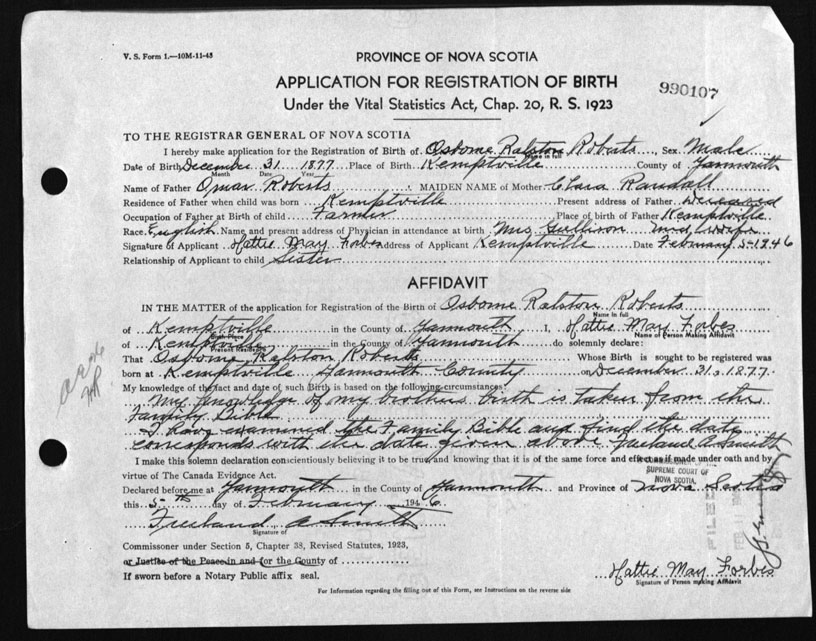 V. S. Form 1.—10M-11-45
PROVINCE OF NOVA SCOTIA
APPLICATION FOR REGISTRATION OF BIRTH
990107
Under the Vital Statistics Act, Chap. 20, R. S. 1923
TO THE REGISTRAR GENERAL OF NOVA SCOTIA
I hereby make application for the Registration of Birth of Osborne Ralston Roberts, Sex Male
Name in full
Date of Birth December 31 1877 Place of Birth Kemptville County of Yarmouth
Month Date Year
Name of Father Omar Roberts MAIDEN NAME of Mother Clara Randall
Residence of Father when child was born Kemptville Present address of Father Deceased
Occupation of Father at Birth of child Farmer Place of birth of Father Kemptville
Race English Name and present address of Physician in attendance at birth Mrs Gullison mid wife
Signature of Applicant Hattie May Forbes Address of Applicant Kemptville Date February 5-1946
Relationship of Applicant to child Sister
AFFIDAVIT
IN THE MATTER of the application for Registration of the Birth of Osborne Ralston Roberts
Name in full
of Kemptville in the County of Yarmouth I, Hattie May Forbes
Birth Place Name of Person Making Affidavit
of Kemptville in the County of Yarmouth do solemnly declare:
Present Residence
That Osborne Ralston Roberts Whose Birth is sought to be registered was
born at Kemptville Yarmouth County on December 31, 1877.
My knowledge of the fact and date of such Birth is based on the following circumstances:
My knowledge of my brothers birth is taken from the
Family Bible
I have examined the Family Bible and find the date
corresponds with the date given above Freeland A Smith
I make this solemn declaration conscientiously believing it to be true and knowing that it is of the same force and effect as if made under oath and by
virtue of The Canada Evidence Act.
SUPREME COURT OF
NOVA SCOTIA
Declared before me at Yarmouth in the County of Yarmouth and Province of Nova Scotia
this 5th day of February 1946
Freeland A Smith
Signature of
Commissoner under Section 5, Chapter 38, Revised Statutes, 1923,
or Justice of the Peace in and for the County of
If sworn before a Notary Public affix seal.
Hattie May Forbes
Signature of Person making Affidavit
For Information regarding the filling out of this Form, see Instructions on the reverse side